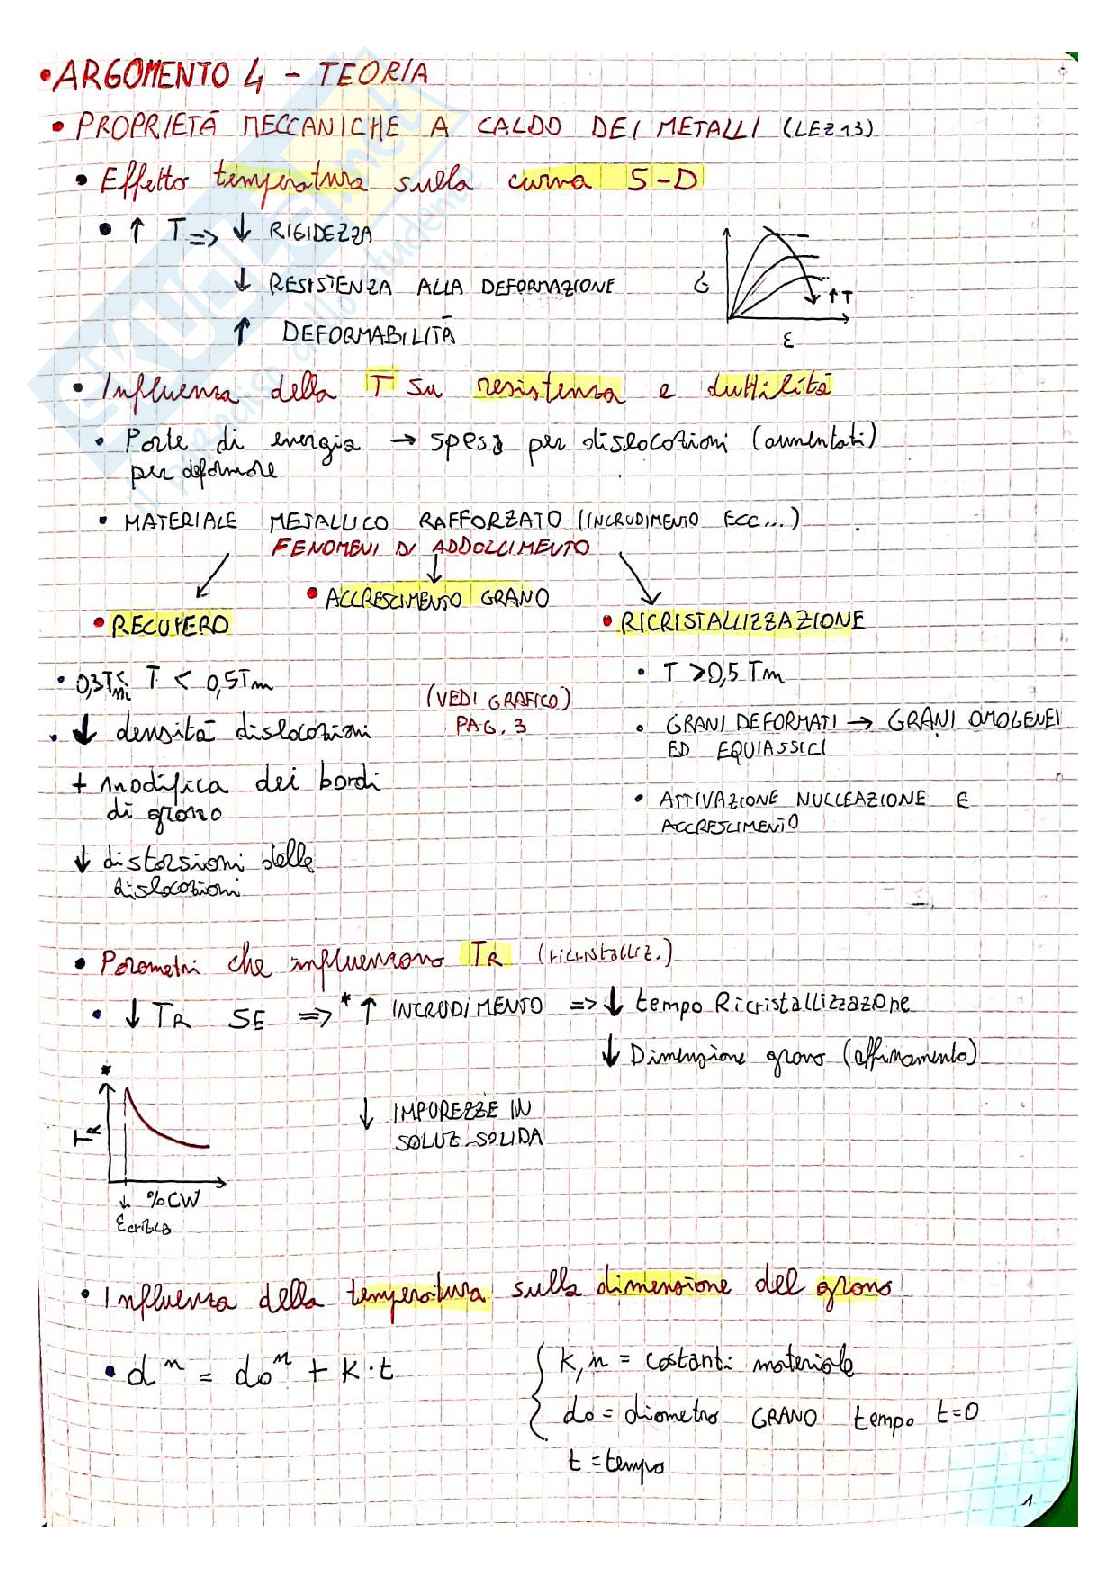 •ARGOMENTO 4 - TEORIA
• PROPRIETÀ MECCANICHE A CALDO DEI METALLI (LEZ 13)
• Effetto temperatura sulla curva S-D
• ↑ T => ↓ RIGIDEZZA
↓ RESISTENZA ALLA DEFORMAZIONE
↑ DEFORMABILITÀ
σ
↑T
ε
• Influenza della T su resistenza e duttilità
• Parte di energia → spesa per dislocazioni (aumentati)
per deformare
• MATERIALE METALLICO RAFFORZATO (INCRUDIMENTO ECC...)
FENOMENI DI ADDOLCIMENTO
• ACCRESCIMENTO GRANO
• RECUPERO
• RICRISTALLIZZAZIONE
• 0,3Tm < T < 0,5Tm
• T > 0,5 Tm
(VEDI GRAFICO)
PAG. 3
• ↓ densità dislocazioni
• GRANI DEFORMATI → GRANI OMOGENEI
ED EQUIASSICI
+ modifica dei bordi
di grano
• ATTIVAZIONE NUCLEAZIONE E
ACCRESCIMENTO
↓ distorsioni delle
dislocazioni
• Parametri che influenzano TR (ricristalliz.)
• ↓ TR SE => * ↑ INCRUDIMENTO => ↓ tempo Ricristallizzazione
↓ Dimensione grano (affinamento)
*
↓ IMPUREZZE IN
SOLUZ. SOLIDA
TR
↓ %CW
εcritica
• Influenza della temperatura sulla dimensione del grano
• dⁿ = d₀ⁿ + K·t
{ K, n = costanti materiale
d₀ = diametro GRANO tempo t=0
t = tempo
1